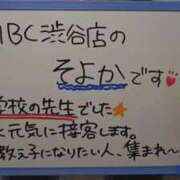 BC渋谷店の
そよかです
学校の先生でした
元気に接客します。
教え子になりたい人、集まれ〜